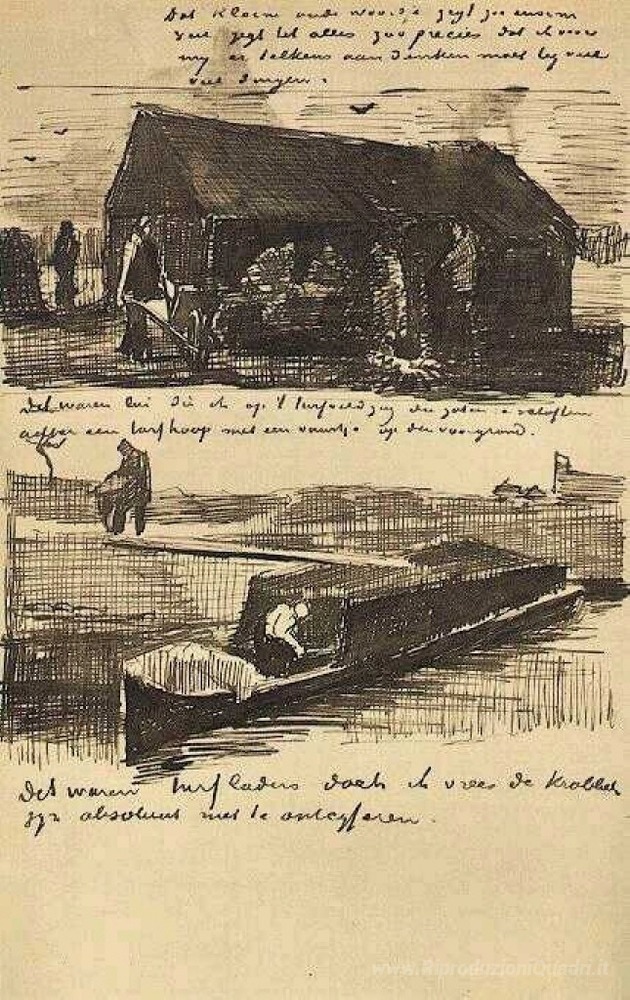 Dat kleine oude woordje zegt zoo enorm
veel zegt het alles zoo precies dat ik voor
my er telkens aan denken moet by veel
veel dingen.
Dat waren lui die ik op 't turfveld zag die zaten e schoften
achter een turfhoop met een vuurtje op den voorgrond.
Dat waren turfladers doch ik vrees de krabbels
zyn absoluut niet te ontcyferen.
www.RiproduzioniQuadri.it